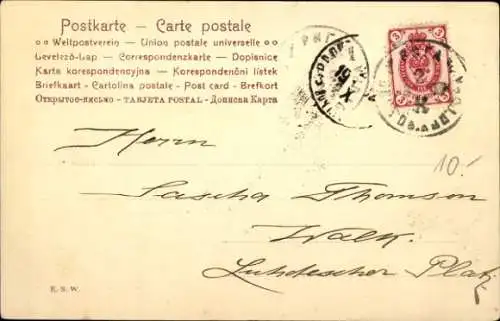 Postkarte – Carte postale
Weltpostverein – Union postale universelle
Levelező-Lap – Correspondenzkarte – Dopisnice
Karta korespondencyjna – Korespondenční lístek
Briefkaart – Cartolina postale – Post card – Brefkort
Открытое письмо – TARJETA POSTAL – Дописна Карта
3 3
3 3
19
X
Herrn
10.-
Sascha Thomson
Walk.
Luhdescher Platz
E. S. W.